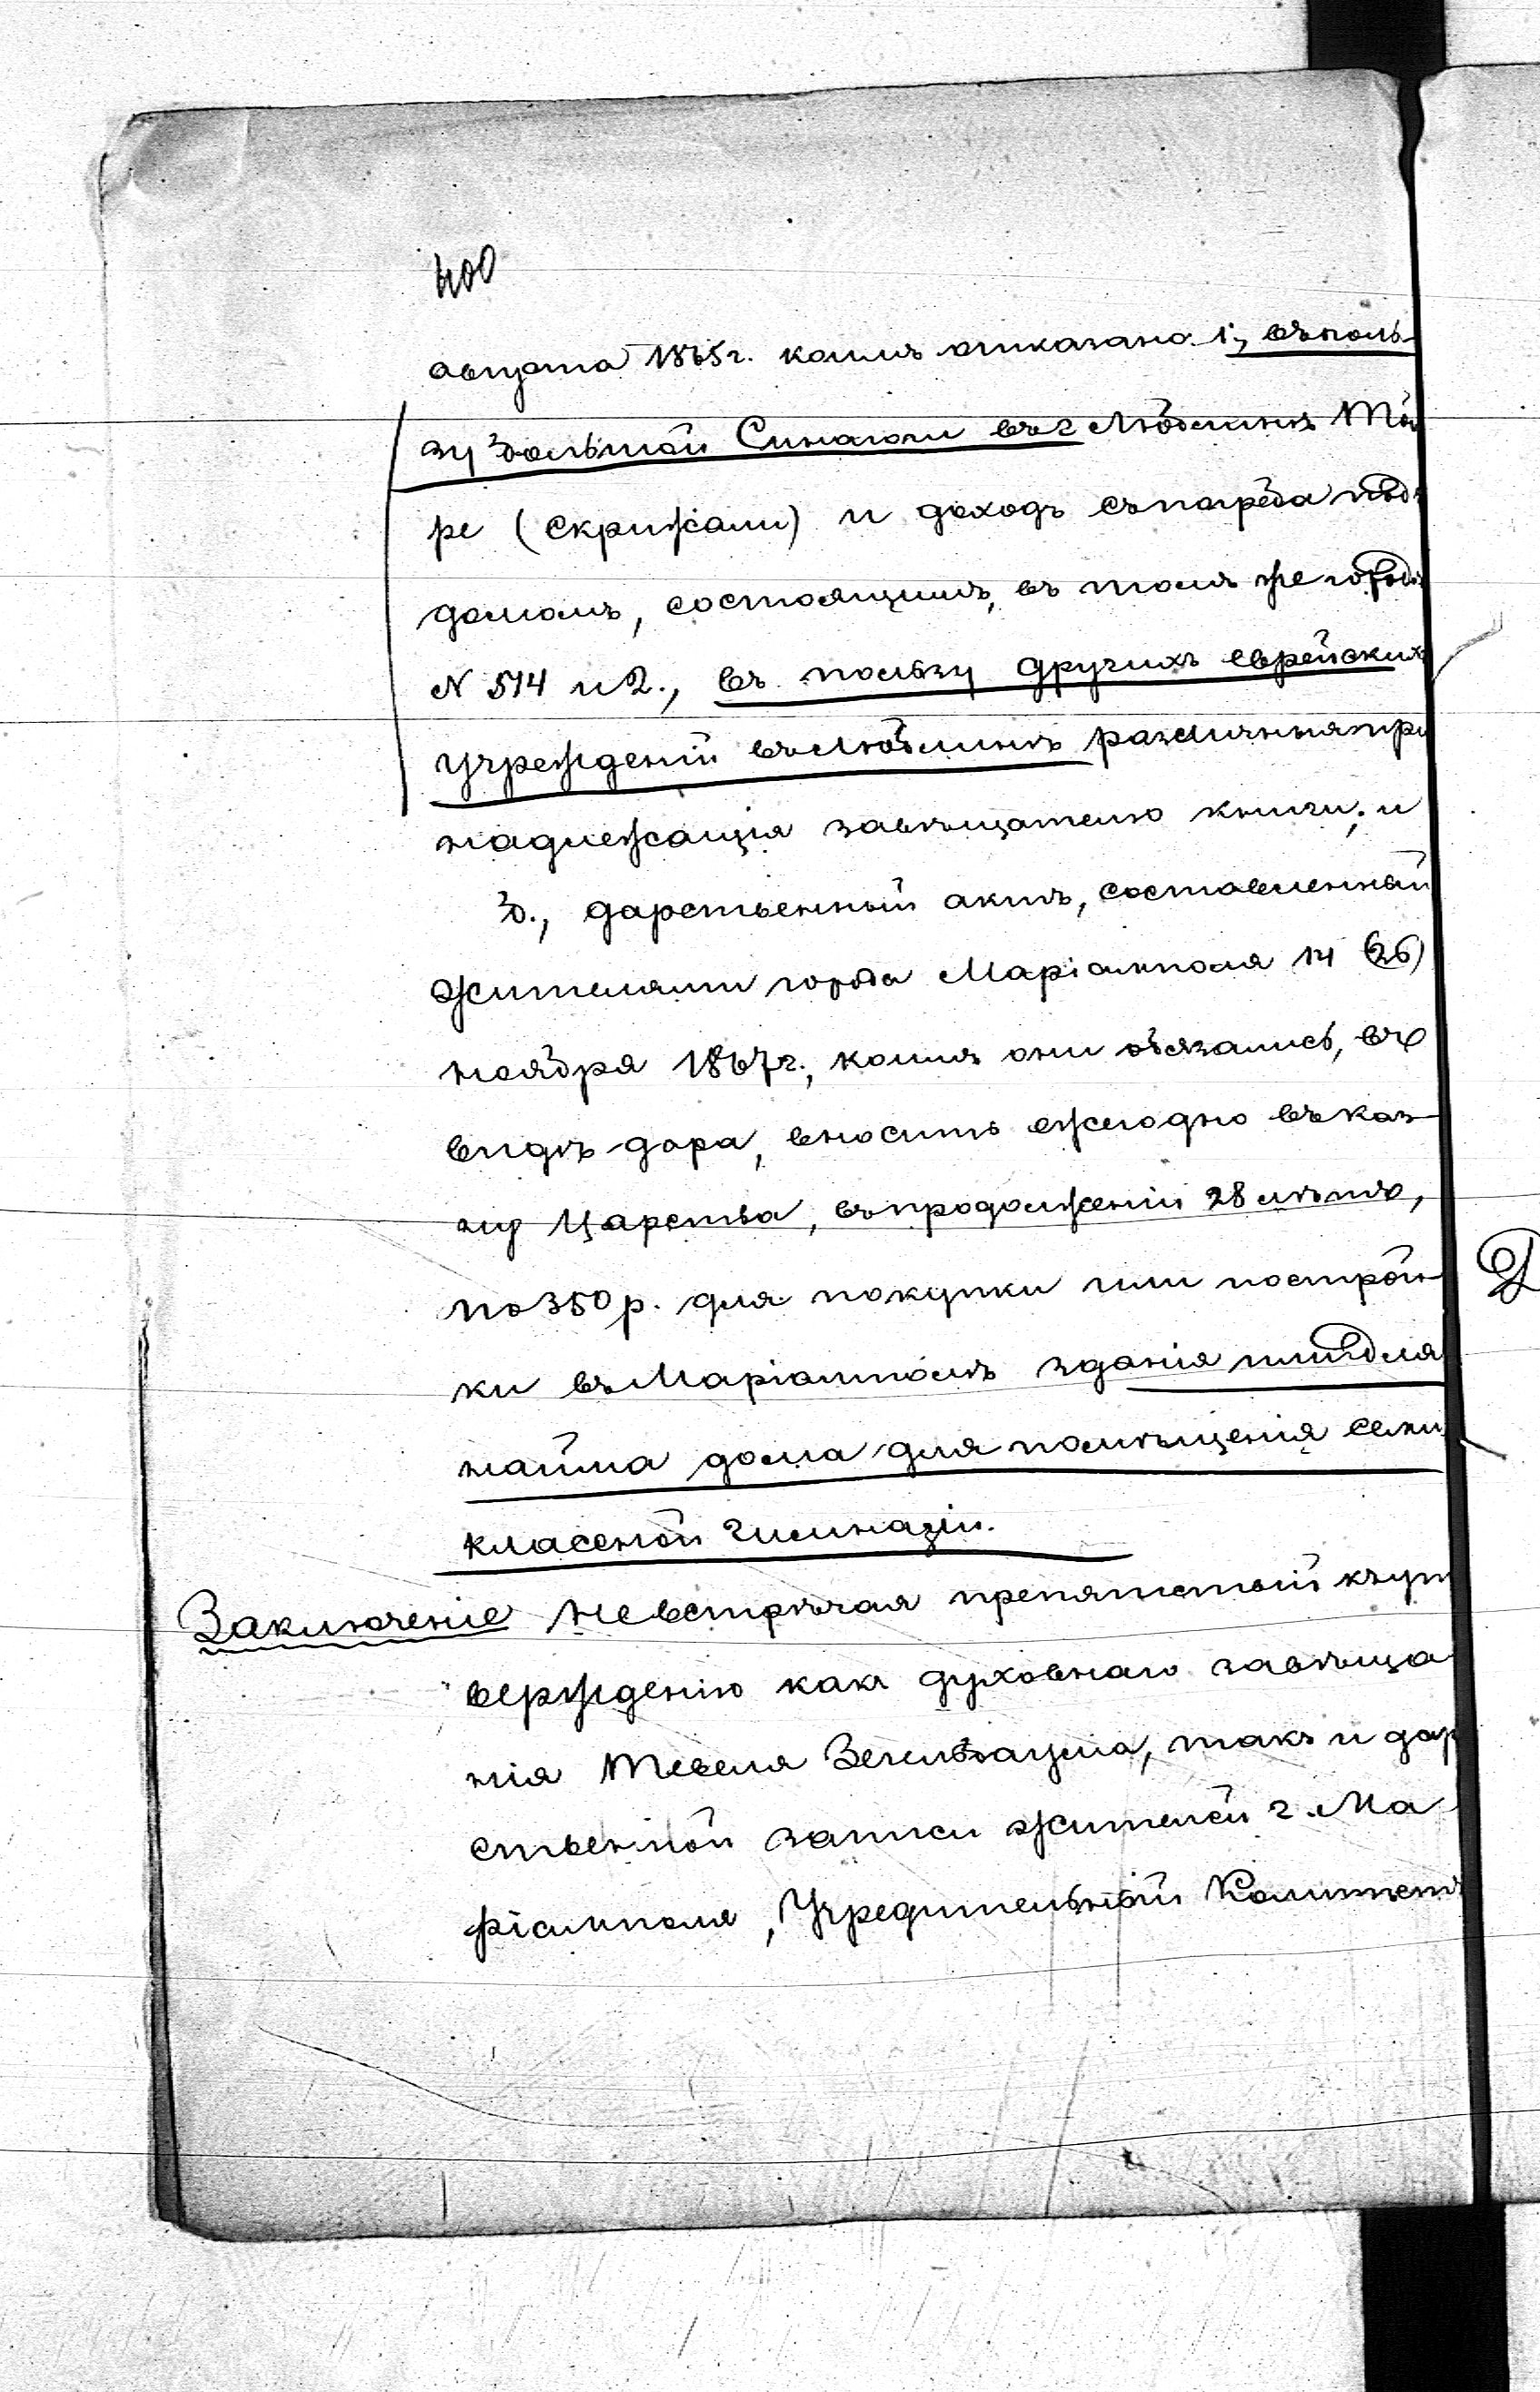 400
августа 1865 г. коимъ отказано: 1., въ поль-
зу большой Синагоги въ г. Люблинѣ То-
ре (скрижали) и доходъ съ погреба подъ
домомъ, состоящимъ, въ томъ же городѣ
N 514 и 2., въ пользу другихъ еврейскихъ
учрежденій въ Люблинѣ различныя при
надлежащія завѣщателю книги; и
б., дарственный актъ, составленный
жителями города Маріамполя 14 (26)
ноября 1867 г., коимъ они обязались, въ
видѣ дара, вносить ежегодно въ каз-
ну Царства, въ продолженіи 28 лѣтъ,
по 350 р. для покупки или построй-
ки въ Маріамполѣ зданія или для
найма дома для помѣщенія семи
класной гимназіи.
Заключеніе Не встрѣчая препятствій къ ут
вержденію какъ духовнаго завѣща
нія Тевеля Зегельбаума, такъ и дар
ственной записи жителей г. Ма
ріамполя, Учредительный Комитетъ